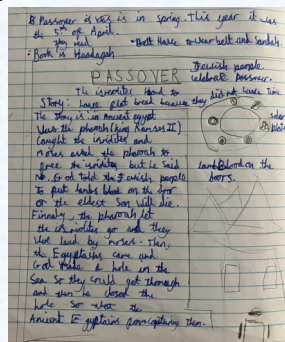 Passover is in spring. This year it was
the 5th of April.
They read • Dont Have to wear belt and Sandals.
• Book is Haadagah
Jewish people
celebrate Passover.
PASSOVER
The isredites Hand to
Story: have flat bread because they did not have Time
The Story is in Ancient egypt
Was the pharoh (king Ramses II)
Caught the isridites and
Moses asked the pharoh to
free the isridites but he said
No. God told the Jewish people
To put lambs blood on the door
or the eldest Son will die.
Finnaly, the pharoh let
the isridites go and they
Wer lead by moses. Then,
the Egyptians came and
God made a hole in the
Sea So they could get through
and then he closed the
hole so that the
Ancient Egyptians
them.
plate
lamb Blood on the
doors.